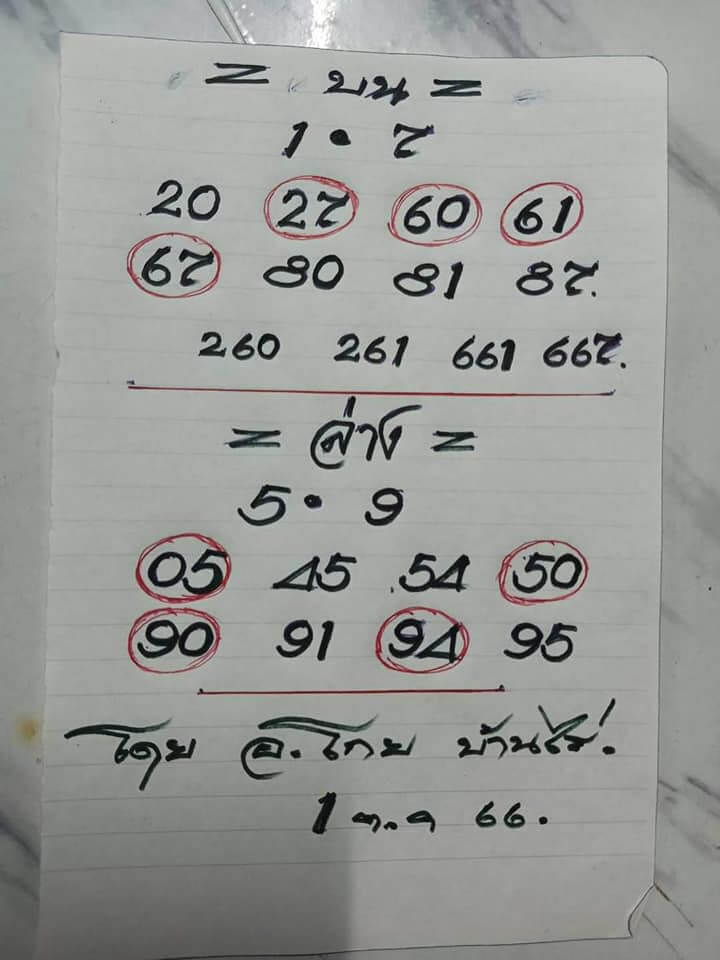 = บน =
1 • 7
20 27 60 61
67 80 81 87.
260 261 661 667.
= ล่าง =
5 • 9
05 45 54 50
90 91 94 95
โดย อ.โกย บ้านไร่.
1 ต.ค 66.